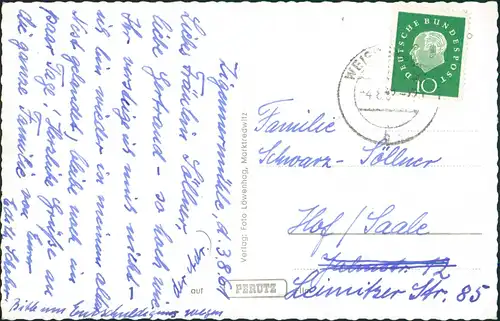 Zigeunermühle, d. 3.8.61
Liebe Fräulein Söllner,
liebe Gertraud - so hoch wie
Ihr wohnt is mir nichts -
bin wieder in meinem alten
Nest gelandet, bleibe noch ein
paar Tage! Herzliche Grüße an
die ganze Familie von
Eurer
Bitte um Entschuldigung wegen
Verlag: Foto Löwenhag, Marktredwitz
auf PERUTZ
DEUTSCHE BUNDESPOST
10
WEISS
Familie
Schwarz-Söllner
Hof/Saale
Leimitzer Str. 85